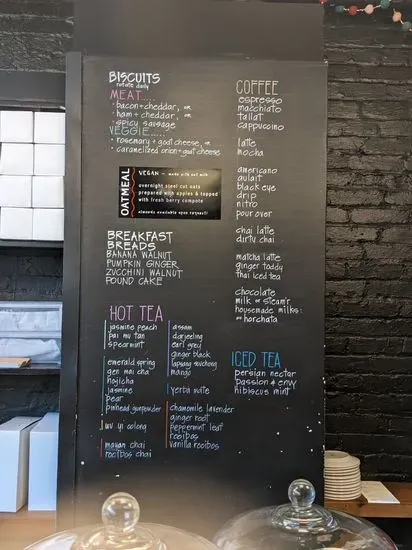 BISCUITS
rotate daily
MEAT.....
• bacon + cheddar, OR
• ham + cheddar, OR
• spicy sausage
VEGGIE.....
• rosemary + goat cheese, OR
• caramelized onion + goat cheese
OATMEAL
VEGAN - made with oat milk
overnight steel cut oats
prepared with apples & topped
with fresh berry compote
almonds available upon request!
BREAKFAST
BREADS
BANANA WALNUT
PUMPKIN GINGER
ZUCCHINI WALNUT
POUND CAKE
HOT TEA
jasmine peach
pai mu tan
spearmint
emerald spring
gen mai cha
hojicha
jasmine
pear
pinhead gunpowder
wu yi oolong
mayan chai
rooibos chai
assam
darjeeling
earl grey
ginger black
lapsang souchong
mango
yerba mate
chamomile lavender
ginger root
peppermint leaf
rooibos
vanilla rooibos
COFFEE
espresso
macchiato
tallat
cappuccino
latte
mocha
americano
aulait
black eye
drip
nitro
pour over
chai latte
dirty chai
matcha latte
ginger toddy
thai iced tea
chocolate
milk or steam'r
housemade milks:
horchata
ICED TEA
persian nectar
passion & envy
hibiscus mint